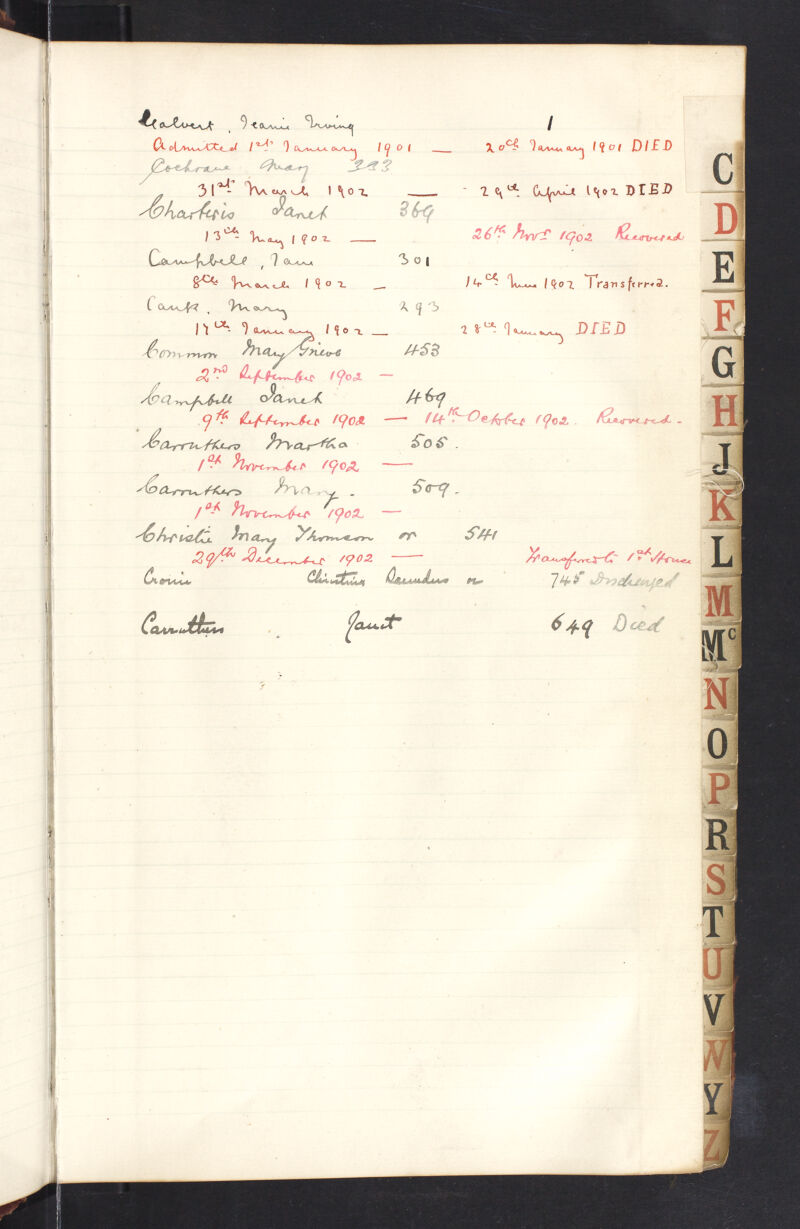 Calvert, Jeanie Irving 1
Admitted 1st January 1901 — 20th January 1901 DIED
Cochrane Mary 333
31st March 1902 — 29th April 1902 DIED
Charteris Janet 369
13th May 1902 — 26th Novr 1902 Recovered
Campbell, Jane 301
8th March 1902 — 14th June 1902 Transferred.
Cank, Mary 293
17th January 1902 — 28th January DIED
Common Mary Grieve 453
2nd September 1902 —
Campbell Janet 469
9th September 1902 — 14th October 1902. Recovered.
Carruthers Martha 505.
1st November 1902 —
Carruthers Mary. 509.
1st November 1902 —
Christie Mary Thomson or 541
29th December 1902 — Transferred to 1st House
Cronie Christina Saunders or 745 Discharged
Carruthers Janet 649 Died
C
D
E
F
G
H
J
K
L
M
Mc
N
O
P
R
S
T
U
V
W
Y
Z